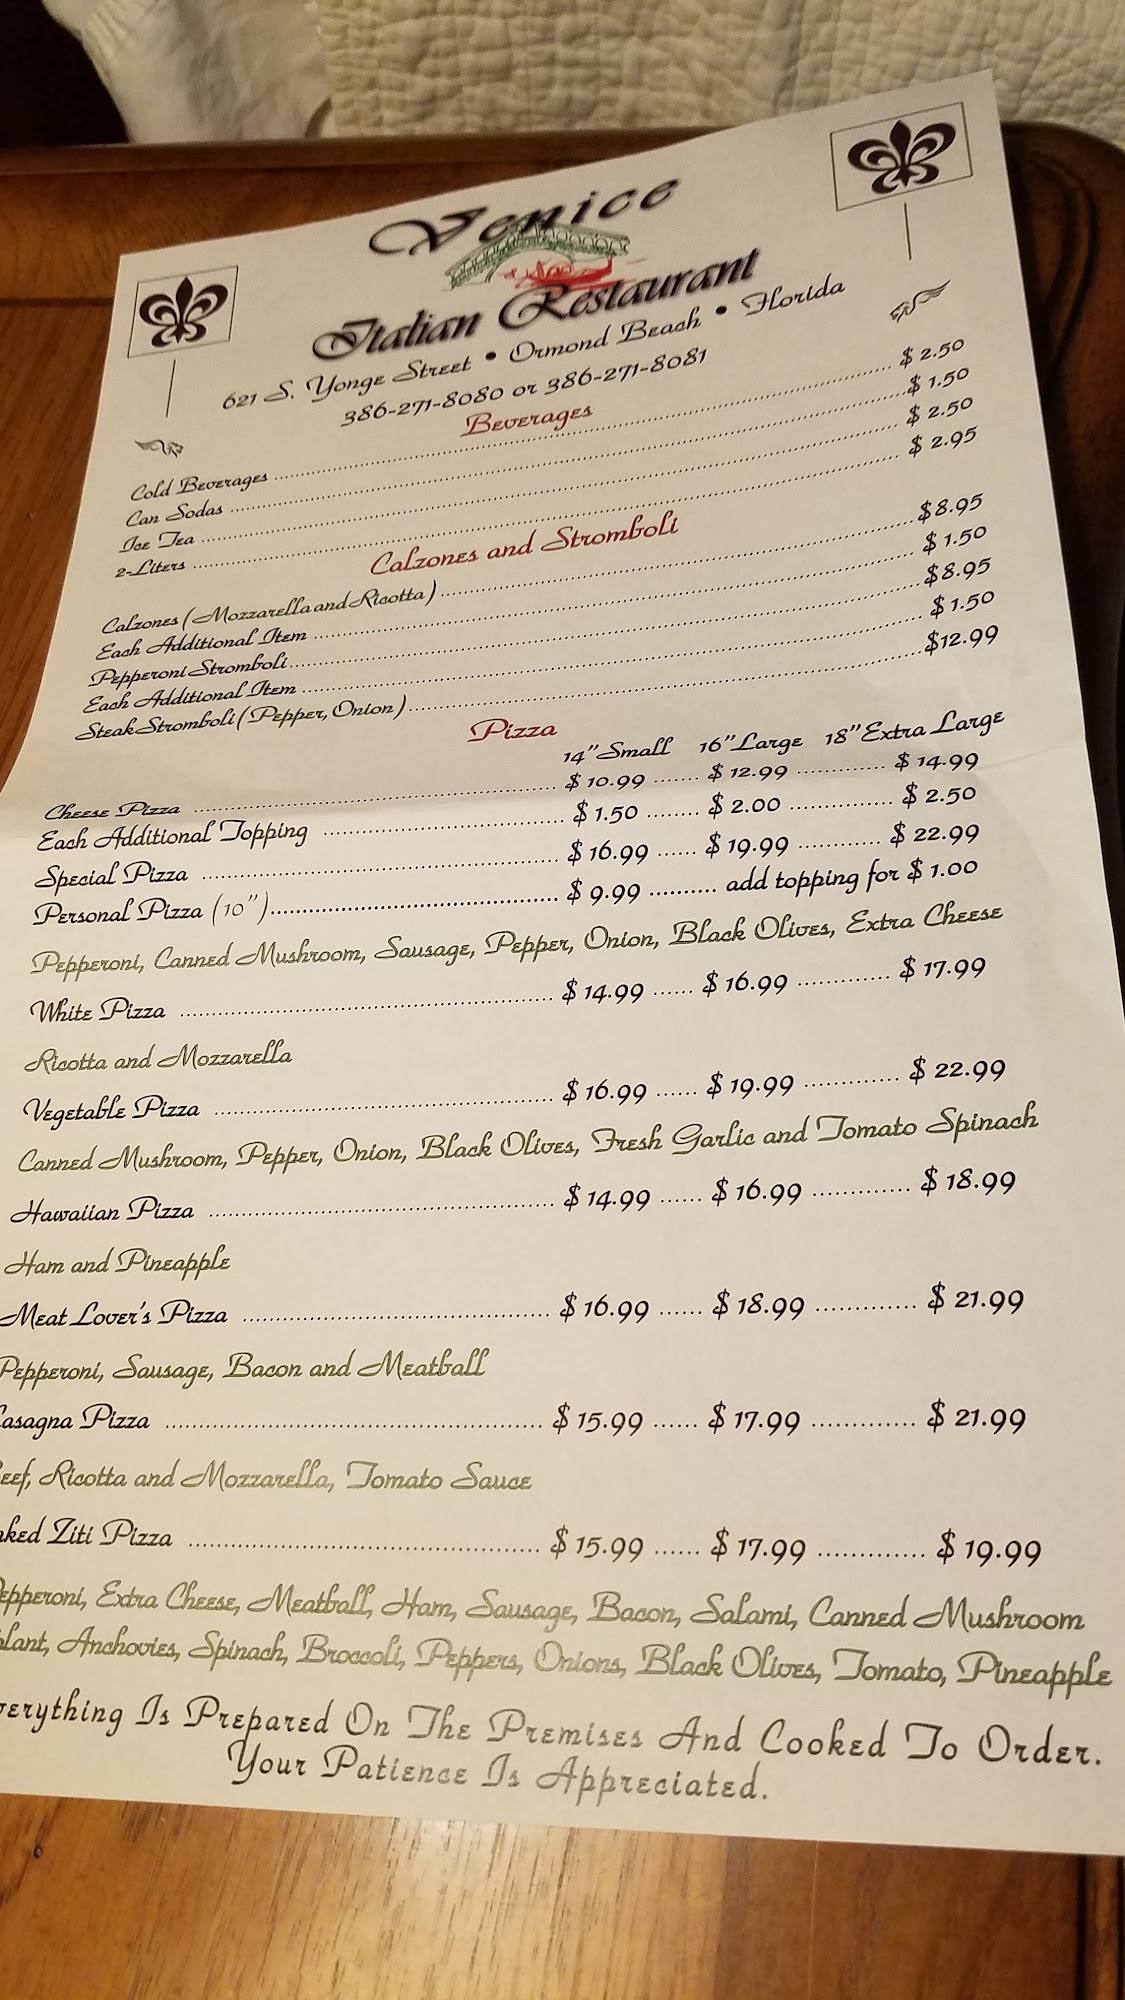 Venice
Italian Restaurant
621 S. Yonge Street • Ormond Beach • Florida
386-271-8080 or 386-271-8081
Beverages
Cold Beverages $ 2.50
Can Sodas $ 1.50
Ice Tea $ 2.50
2-Liters $ 2.95
Calzones and Stromboli
Calzones (Mozzarella and Ricotta) $8.95
Each Additional Item $ 1.50
Pepperoni Stromboli $8.95
Each Additional Item $ 1.50
Steak Stromboli (Pepper, Onion) $12.99
Pizza
14" Small 16" Large 18" Extra Large
Cheese Pizza $ 10.99 $ 12.99 $ 14.99
Each Additional Topping $ 1.50 $ 2.00 $ 2.50
Special Pizza $ 16.99 $ 19.99 $ 22.99
Personal Pizza (10") $ 9.99 add topping for $ 1.00
Pepperoni, Canned Mushroom, Sausage, Pepper, Onion, Black Olives, Extra Cheese
White Pizza $ 14.99 $ 16.99 $ 17.99
Ricotta and Mozzarella
Vegetable Pizza $ 16.99 $ 19.99 $ 22.99
Canned Mushroom, Pepper, Onion, Black Olives, Fresh Garlic and Tomato Spinach
Hawaiian Pizza $ 14.99 $ 16.99 $ 18.99
Ham and Pineapple
Meat Lover's Pizza $ 16.99 $ 18.99 $ 21.99
Pepperoni, Sausage, Bacon and Meatball
asagna Pizza $ 15.99 $ 17.99 $ 21.99
eef, Ricotta and Mozzarella, Tomato Sauce
ked Ziti Pizza $ 15.99 $ 17.99 $ 19.99
epperoni, Extra Cheese, Meatball, Ham, Sausage, Bacon, Salami, Canned Mushroom
plant, Anchovies, Spinach, Broccoli, Peppers, Onions, Black Olives, Tomato, Pineapple
verything Is Prepared On The Premises And Cooked To Order.
Your Patience Is Appreciated.